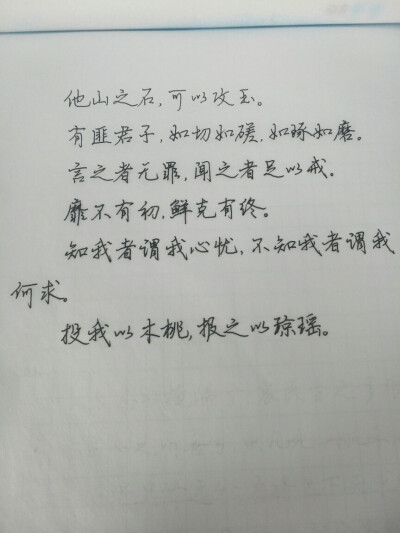 他山之石,可以攻玉。
有匪君子,如切如磋,如琢如磨。
言之者无罪,闻之者足以戒.
靡不有初,鲜克有终。
知我者谓我心忧,不知我者谓我
何求。
投我以木桃,报之以琼瑶。